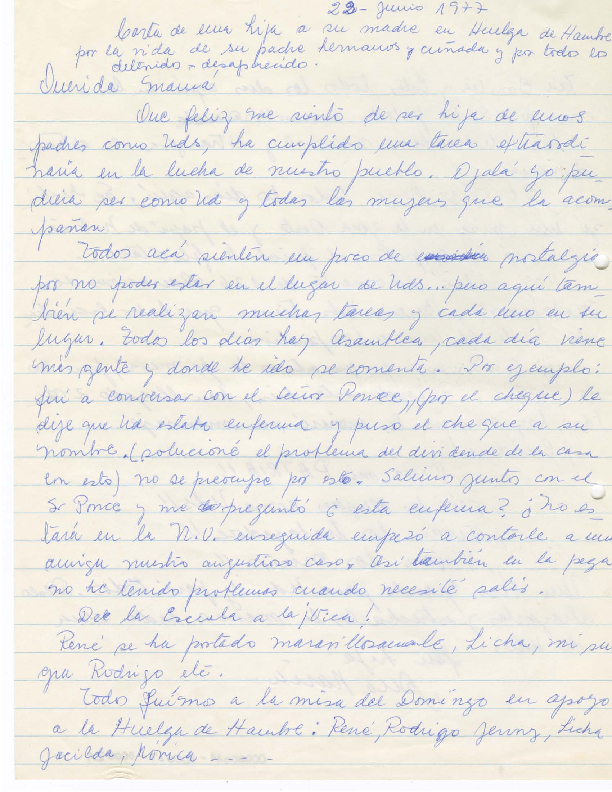 22 - Junio 1977
Carta de una hija a su madre en Huelga de Hambre
por la vida de su padre hermanos y cuñada y por todo los
detenido - desaparecido.
Querida Mamá
Que feliz me siento de ser hija de unos
padres como Uds, ha cumplido una tarea extraordi
naria en la lucha de nuestro pueblo. Ojalá yo pu-
diera ser como Ud y todas las mujeres que la acom-
pañan.
Todos acá sienten un poco de nostalgia
por no poder estar en el lugar de Uds... pero aquí tam-
bién se realizan muchas tareas y cada uno en su
lugar. Todos los días hay Asamblea, cada día viene
más gente y donde he ido se comenta. Por ejemplo:
fui a conversar con el señor Ponce, (por el cheque) le
dije que Ud estaba enferma y puso el cheque a su
nombre. (solucioné el problema del dividende de la casa
con esto) no se preocupe por esto. Salimos juntos con el
Sr Ponce y me preguntó ¿ esta enferma? ¿no es-
tará en la N.U. enseguida empezó a contarle a un
amigo nuestro angustioso caso. Asi también en la pega
no he tenido problemas cuando necesité salir.
De la Escuela a la
René se ha portado maravillosamente, Licha, mi sue
gra Rodrigo etc.
Todos fuimo a la misa del Domingo en apoyo
a la Huelga de Hambre: René, Rodrigo Jenny, Licha
Jacilda, Mónica - - - - -